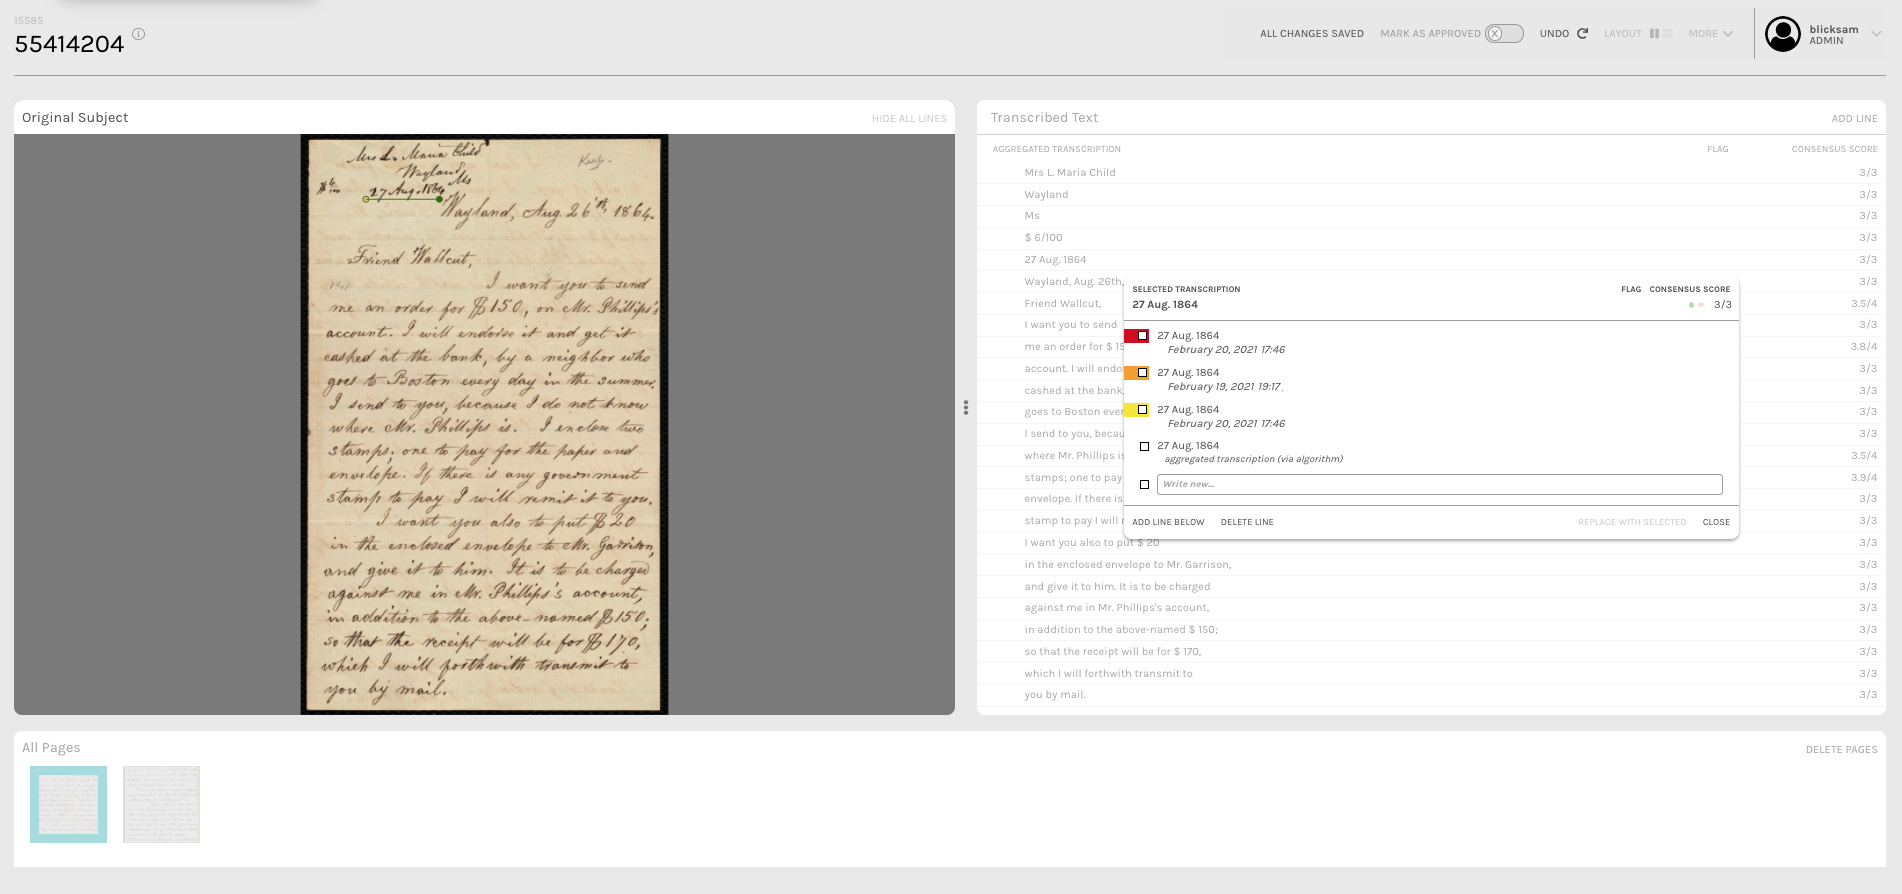 15585
55414204
ALL CHANGES SAVED
MARK AS APPROVED
UNDO
LAYOUT
MORE
blicksam
ADMIN
Original Subject
HIDE ALL LINES
Mrs L. Maria Child
Keep.
Wayland
Ms
$ 6/100
27 Aug. 1864
Wayland, Aug. 26th, 1864.
Friend Wallcut,
I want you to send
me an order for $150, on Mr. Phillips's
account. I will endorse it and get it
cashed at the bank, by a neighbor who
goes to Boston every day in the summer.
I send to you, because I do not know
where Mr. Phillips is. I enclose two
stamps; one to pay for the paper and
envelope. If there is any government
stamp to pay I will remit it to you.
I want you also to put $20
in the enclosed envelope to Mr. Garrison,
and give it to him. It is to be charged
against me in Mr. Phillips's account,
in addition to the above-named $150;
so that the receipt will be for $170,
which I will forthwith transmit to
you by mail.
Transcribed Text
ADD LINE
AGGREGATED TRANSCRIPTION
FLAG
CONSENSUS SCORE
Mrs L. Maria Child 3/3
Wayland 3/3
Ms 3/3
$ 6/100 3/3
27 Aug. 1864 3/3
Wayland, Aug. 26th, 3/3
Friend Wallcut, 3.5/4
I want you to send 3/3
me an order for $ 15 3.8/4
account. I will endo 3/3
cashed at the bank, 3/3
goes to Boston ever 3/3
I send to you, becau 3/3
where Mr. Phillips is 3.5/4
stamps; one to pay 3.9/4
envelope. If there is 3/3
stamp to pay I will r 3/3
I want you also to put $ 20 3/3
in the enclosed envelope to Mr. Garrison, 3/3
and give it to him. It is to be charged 3/3
against me in Mr. Phillips's account, 3/3
in addition to the above-named $ 150; 3/3
so that the receipt will be for $ 170, 3/3
which I will forthwith transmit to 3/3
you by mail. 3/3
SELECTED TRANSCRIPTION
FLAG
CONSENSUS SCORE
27 Aug. 1864
3/3
27 Aug. 1864
February 20, 2021 17:46
27 Aug. 1864
February 19, 2021 19:17
27 Aug. 1864
February 20, 2021 17:46
27 Aug. 1864
aggregated transcription (via algorithm)
Write new...
ADD LINE BELOW
DELETE LINE
REPLACE WITH SELECTED
CLOSE
All Pages
DELETE PAGES